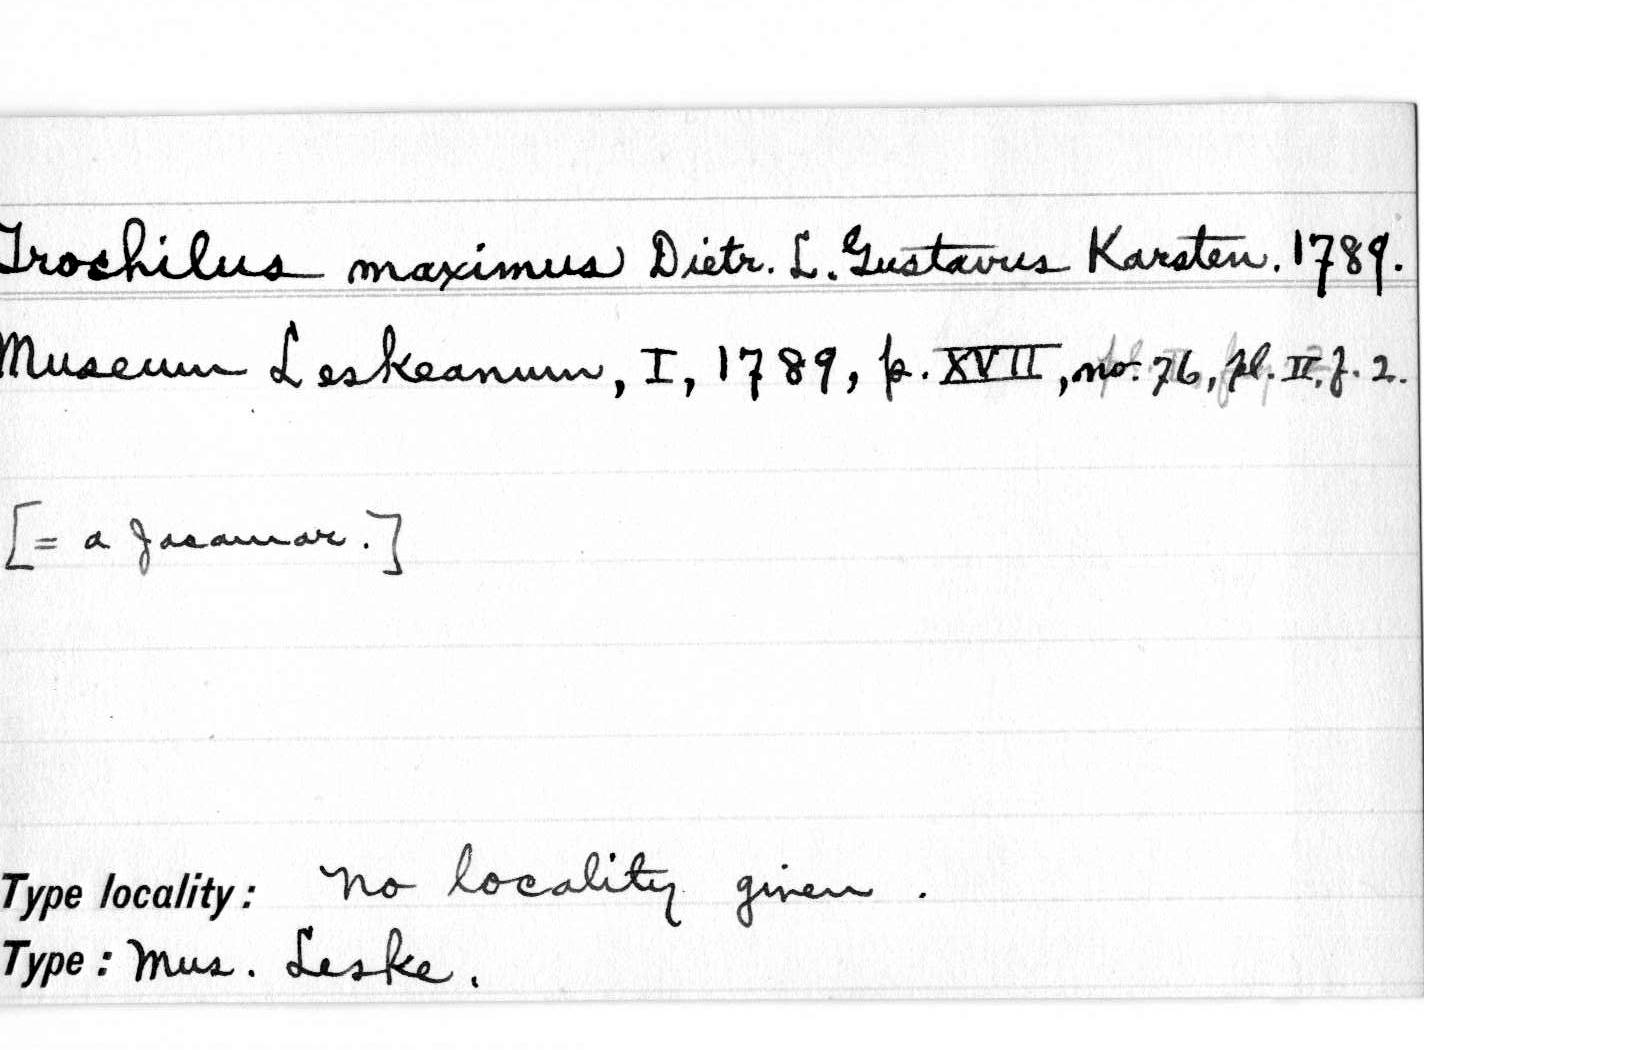 Trochilus maximus Dietr. L. Gustavus Karsten. 1789.
Museum Leskeanum, I, 1789, p. XVII, no. 76, pl. II. f. 2.
[= a Jacamar.]
Type locality: No locality given.
Type: Mus. Leske.